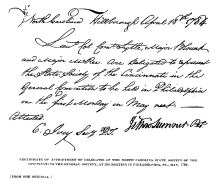 North Carolina Hillsborough April 15th 1784
Lieut Col Constant, Major Blount
and Major McRee are delegated to represent
the State Society of the Cincinnati in the
General Convention to be held in Philadelphia
on the first Monday in May next.
Attested
Jethro Sumner Pst
C. Ivey Secy
CERTIFICATE OF APPOINTMENT OF DELEGATES OF THE NORTH CAROLINA STATE SOCIETY OF THE
CINCINNATI TO THE GENERAL SOCIETY, AT ITS MEETING IN PHILADELPHIA, PA., MAY, 1784.
[FROM THE ORIGINAL.]